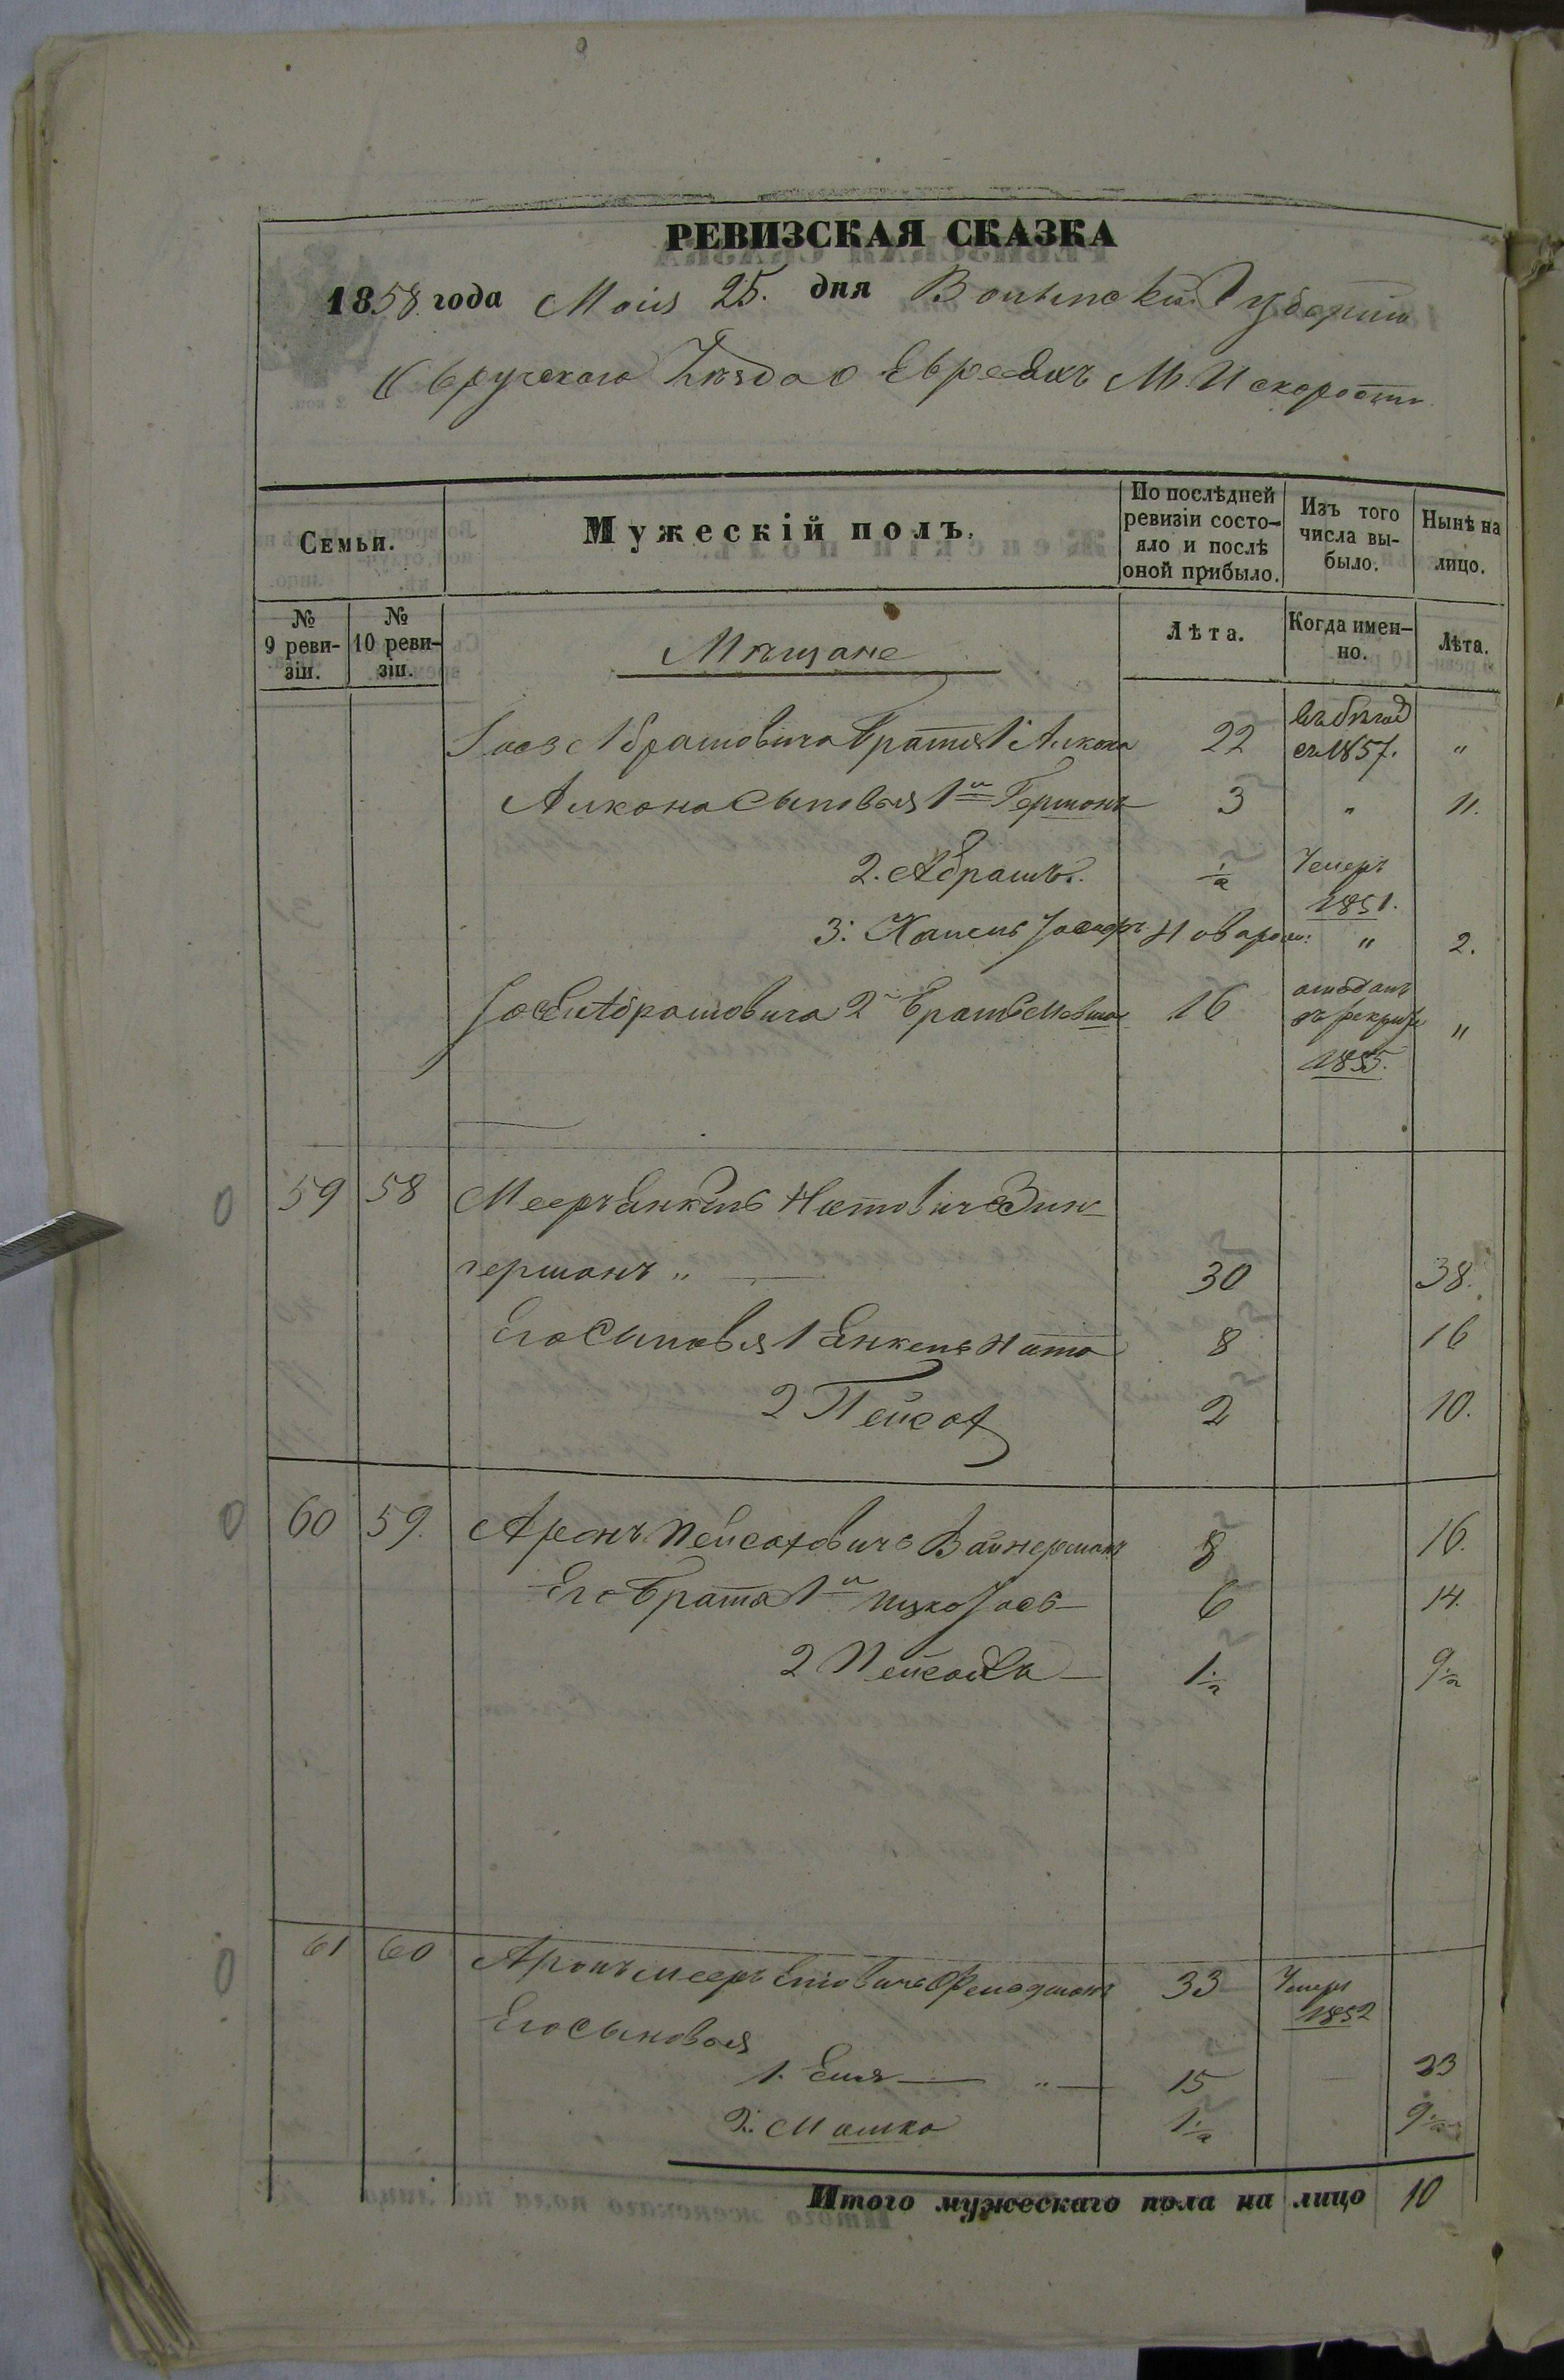 РЕВИЗСКАЯ СКАЗКА
1858 года Маія 25. дня Волынской Губерніи
Овручскаго Уѣзда о Евреяхъ М. Искорости
Семьи.
Мужескій полъ.
По послѣдней ревизіи состояло и послѣ оной прибыло.
Изъ того числа выбыло.
Нынѣ на лицо.
№ 9 ревизіи.
№ 10 ревизіи.
Мѣщане
Лѣта.
Когда именно.
Лѣта.
Абрамовича братья 1й Алкона 22 въ бѣгах съ 1857. "
Алкона Сыновья 1й Гершонъ 3 " 11.
2. Абрамъ. 1/2 Умеръ 1851.
3. Хаимъ Іосифъ Новорож: " 2.
Абрамовича 2й братъ Мовша 16 отданъ въ рекруты 1855. "
59 58 Мееръ Янкель Нотовичъ Зин-
германъ " 30 38.
Его Сыновья 1 Янкель Ното 8 16
2 Пейсах 2 10.
60 59. Аронъ Пейсаховичъ Вайнерманъ 8 16.
Его братья 1й Ицко Іось 6 14.
2 1 1/2 9 1/2
61 60 Аронъ Мееръ Фельдманъ 33 Умеръ 1852
Его Сыновья
1. Еля " 15 23
2. Мошко 1 1/2 9 1/2
Итого мужескаго пола на лицо 10